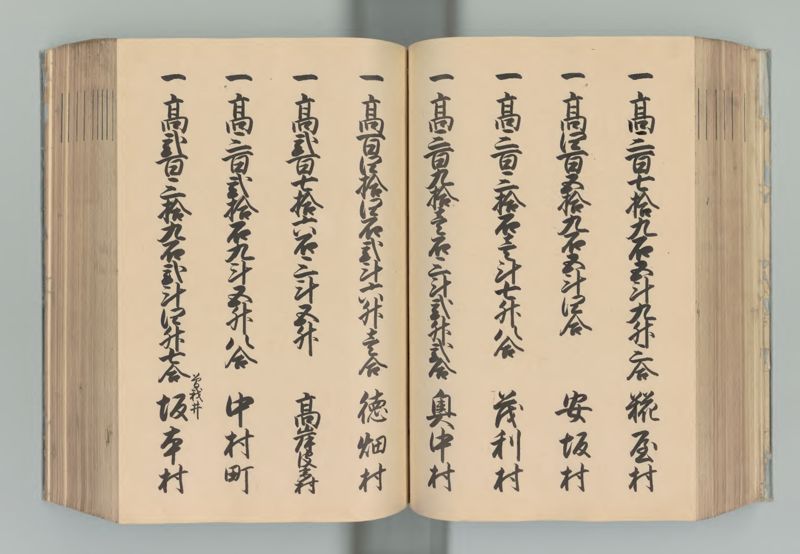 一 高三百七拾九石五斗九升三合 糀屋村
一 高四百五拾九石五斗四合 安坂村
一 高三百三拾石壱斗七升八合 茂利村
一 高三百九拾壱石三斗弐升弐合 奥中村
一 高百四拾四石弐斗六升壱合 徳畑村
一 高弐百七拾六石三斗五升 高岸
一 高三百弐拾石九斗五升八合 中村町
一 高弐百三拾九石弐斗四升七合 曽我井
坂本村